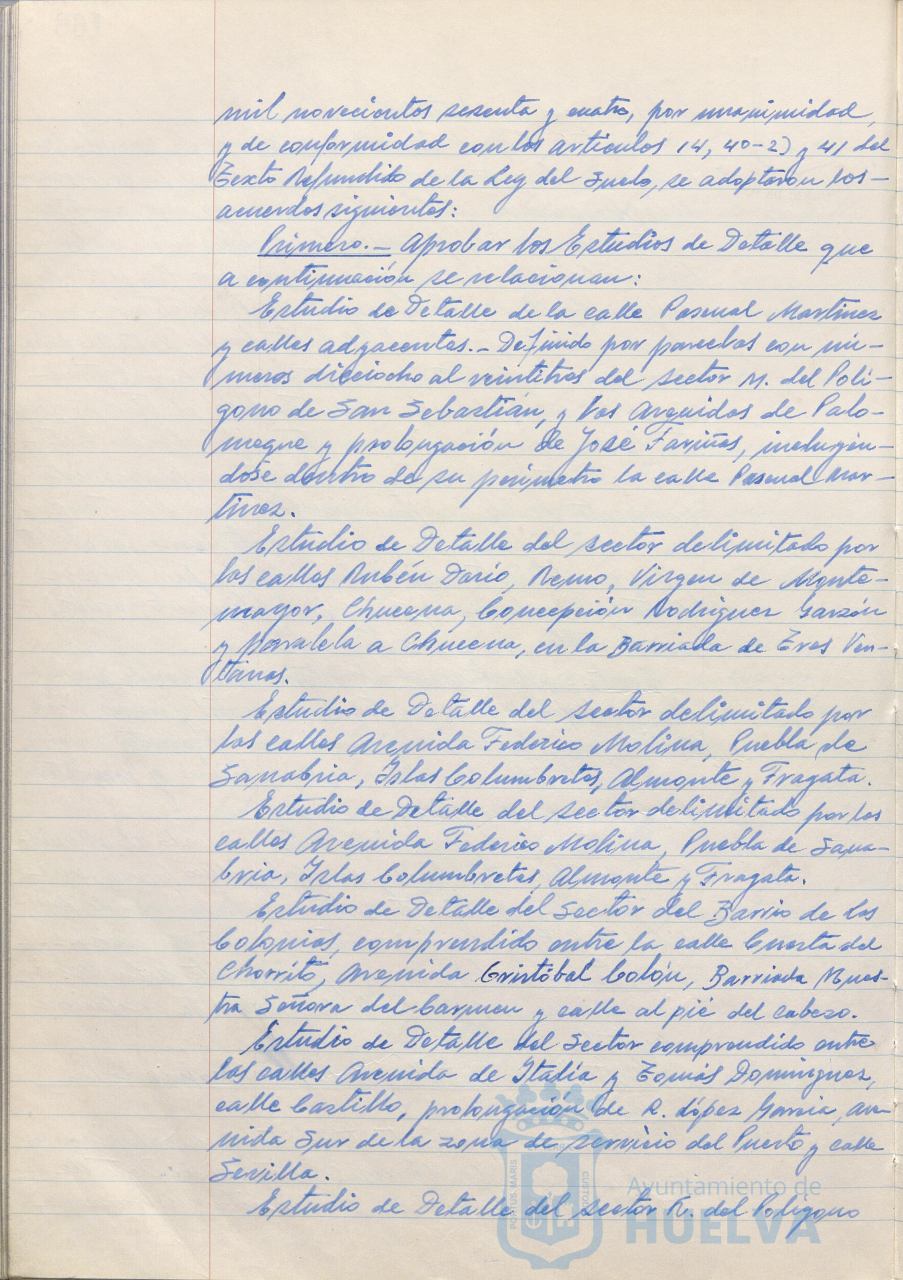 mil novecientos sesenta y cuatro, por unanimidad,
y de conformidad con los artículos 14, 40-2) y 41 del
Texto Refundido de la Ley del Suelo, se adoptaron los-
acuerdos siguientes:
Primero.- Aprobar los Estudios de Detalle que
a continuación se relacionan:
Estudio de Detalle de la calle Pascual Martínez
y calles adyacentes.- Definido por parcelas con nú-
meros dieciocho al veintitres del sector M. del Polí-
gono de San Sebastián, y las Avenidas de Palo-
meque y prolongación de José Fariñas, incluyén-
dose dentro de su perímetro la calle Pascual Mar-
tínez.
Estudio de Detalle del sector delimitado por
las calles Rubén Darío, Remo, Virgen de Monte-
mayor, Chucena, Concepción Rodríguez Garzón
y paralela a Chucena, en la Barriada de Tres Ven-
tanas.
Estudio de Detalle del sector delimitado por
las calles Avenida Federico Molina, Puebla de
Sanabria, Islas Columbretes, Almonte y Fragata.
Estudio de Detalle del sector delimitado por las
calles Avenida Federico Molina, Puebla de Sana-
bria, Islas Columbretes, Almonte y Fragata.
Estudio de Detalle del Sector del Barrio de las
Colonias, comprendido entre la calle Cuesta del
Chorrito, Avenida Cristóbal Colón, Barriada Nues-
tra Señora del Carmen y calle al pié del cabezo.
Estudio de Detalle del Sector comprendido entre
las calles Avenida de Italia y Tomás Domínguez,
calle Castillo, prolongación de R. López García, Ave-
nida Sur de la zona de servicio del Puerto y calle
Sevilla.
Estudio de Detalle del sector R. del Polígono
PORTUS MARIS CUSTODIA
Ayuntamiento de
HUELVA